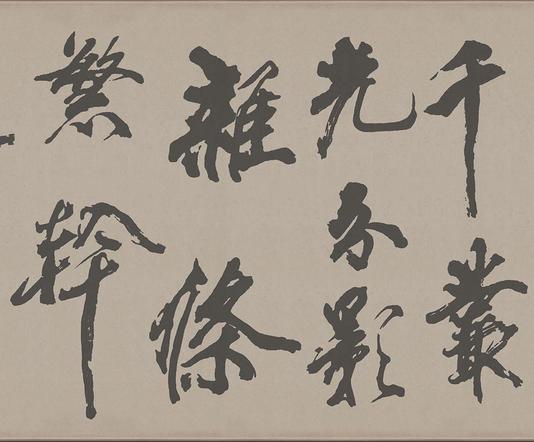 千叢
光分影
雜條
繁幹